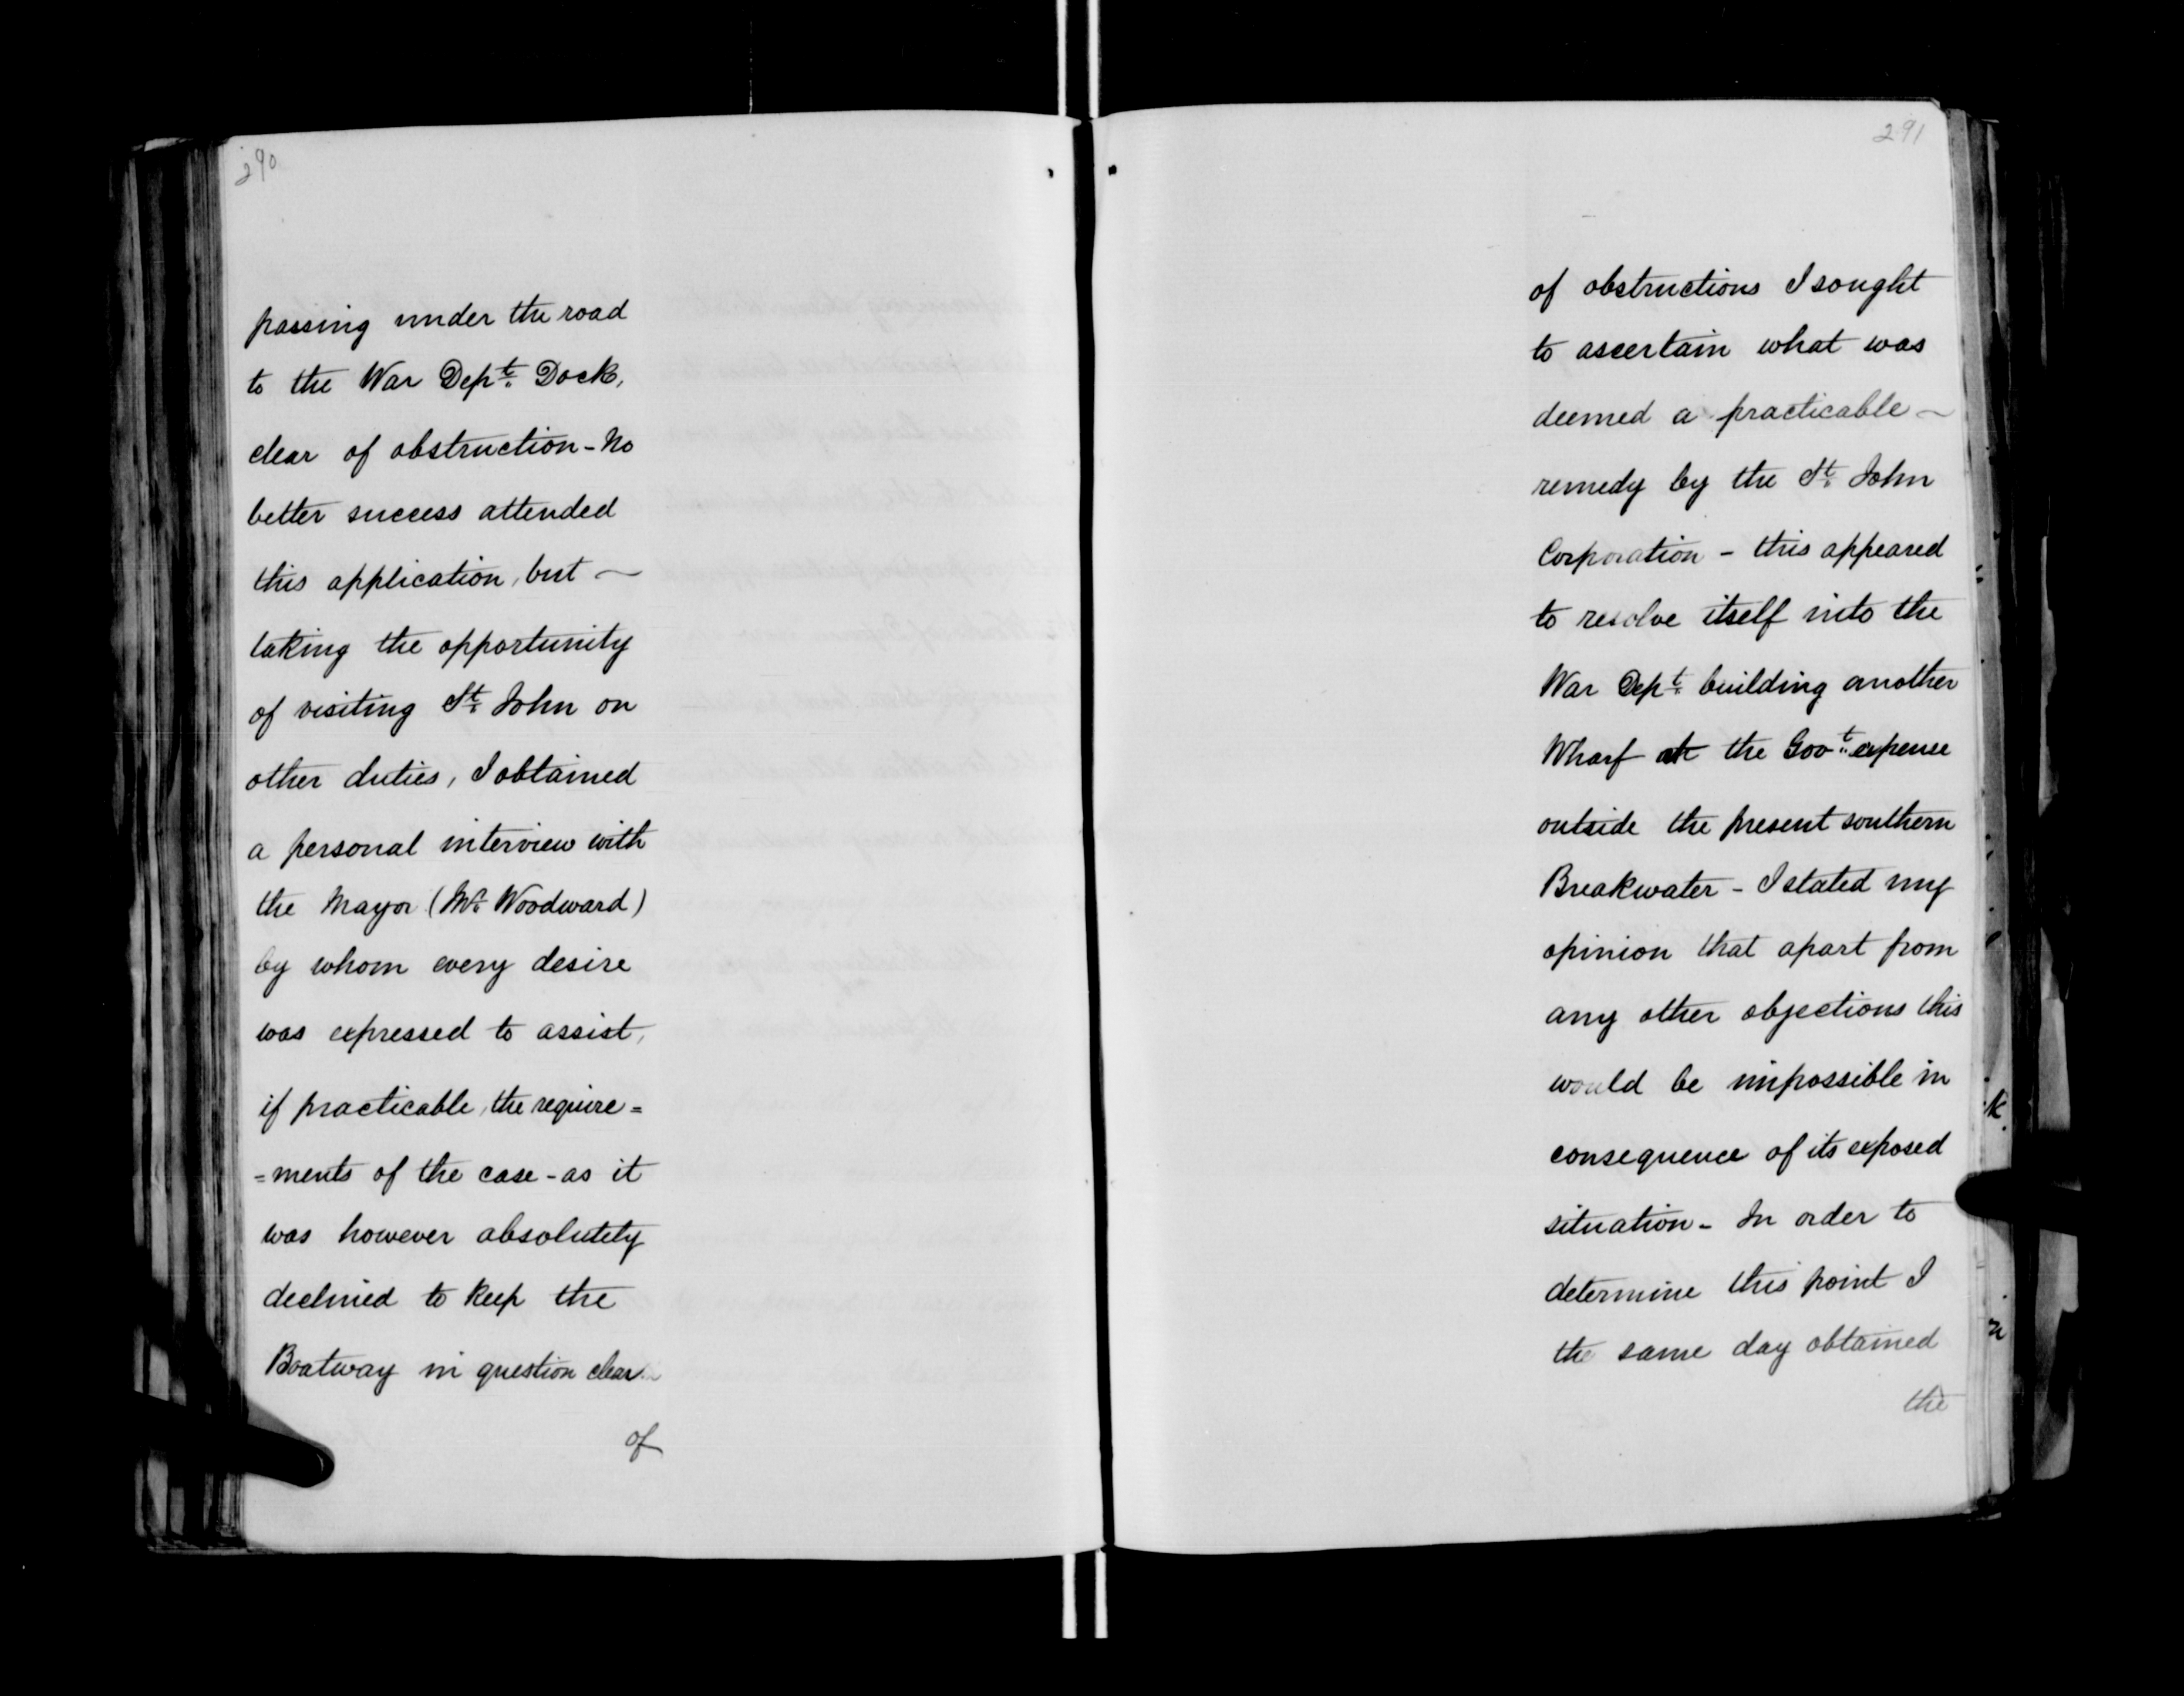 290
passing under the road
to the War Dept. Dock,
clear of obstruction - No
better success attended
this application, but ~
taking the opportunity
of visiting St. John on
other duties, I obtained
a personal interview with
the Mayor (Mr. Woodward)
by whom every desire
was expressed to assist,
if practicable, the require=
=ments of the case - as it
was however absolutely
declined to keep the
Boatway in question clear
of
291
of obstructions I sought
to ascertain what was
deemed a practicable ~
remedy by the St. John
Corporation - this appeared
to resolve itself into the
War Dept. building another
Wharf at the Govt. expense
outside the present southern
Breakwater - I stated my
opinion that apart from
any other objections this
would be impossible in
consequence of its exposed
situation - In order to
determine this point I
the same day obtained
the